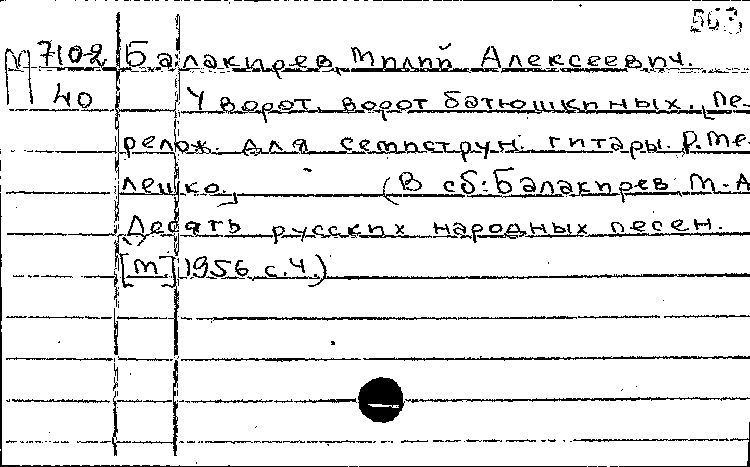 563
П 7102 Балакирев, Милий Алексеевич.
40 У ворот, ворот батюшкиных. [Пе-
релож. для семиструн. гитары Р. Ме-
лешко.] (В сб: Балакирев М. А
Десять русских народных песен.
[М.] 1956 с. 4.)